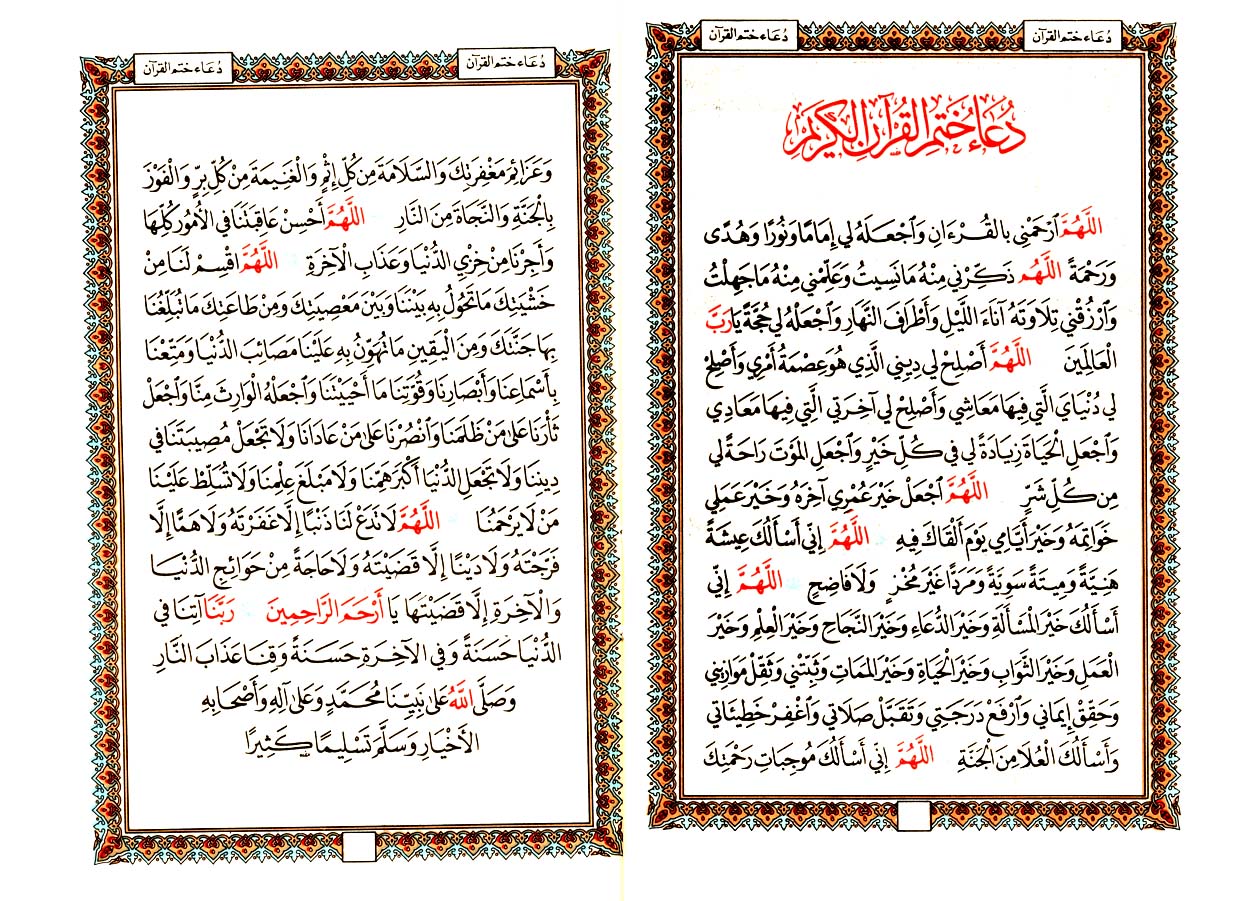 دُعَاء ختم القرآن
دُعَاء ختم القرآن
دُعَاءُ خَتْمِ القُرْآنِ الكَرِيمِ
اللَّهُمَّ ٱرْحَمْنِي بالقُرْءَانِ وَٱجْعَلهُ لِي إِمَامًا وَنُورًا وَهُدًى
وَرَحْمَةً اللَّهُمَّ ذَكِّرْنِي مِنْهُ مَانَسِيتُ وَعَلِّمْنِي مِنْهُ مَاجَهِلْتُ
وَٱرْزُقْنِي تِلاَوَتَهُ آنَاءَ اللَّيْلِ وَأَطْرَافَ النَّهَارِ وَٱجْعَلْهُ لِي حُجَّةً يَارَبَّ
العَالَمِينَ اللَّهُمَّ أَصْلِحْ لِي دِينِي الَّذِي هُوَ عِصْمَةُ أَمْرِي وَأَصْلِحْ
لِي دُنْيَايَ الَّتِي فِيهَا مَعَاشِي وَأَصْلِحْ لِي آخِرَتِي الَّتِي فِيهَا مَعَادِي
وَٱجْعَلِ الْحَيَاةَ زِيَادَةً لِي فِي كُلِّ خَيْرٍ وَٱجْعَلِ المَوْتَ رَاحَةً لِي
مِن كُلِّ شَرٍّ اللَّهُمَّ ٱجْعَلْ خَيْرَ عُمْرِي آخِرَهُ وَخَيْرَ عَمَلِي
خَوَاتِمَهُ وَخَيْرَ أَيَّامِي يَوْمَ أَلْقَاكَ فِيهِ اللَّهُمَّ إِنِّي أَسْأَلُكَ عِيشَةً
هَنِيَّةً وَمِيتَةً سَوِيَّةً وَمَرَدًّا غَيْرَ مُخْزٍ وَلَا فَاضِحٍ اللَّهُمَّ إِنِّي
أَسْأَلُكَ خَيْرَ المَسْأَلَةِ وَخَيْرَ الدُّعَاءِ وَخَيْرَ النَّجَاحِ وَخَيْرَ العِلْمِ وَخَيْرَ
العَمَلِ وَخَيْرَ الثَّوَابِ وَخَيْرَ الحَيَاةِ وَخَيْرَ المَمَاتِ وَثَبِّتْنِي وَثَقِّلْ مَوَازِينِي
وَحَقِّقْ إِيمَانِي وَٱرْفَعْ دَرَجَتِي وَتَقَبَّلْ صَلَاتِي وَٱغْفِرْ خَطِيئَاتِي
وَأَسْأَلُكَ الْعُلَا مِنَ الْجَنَّةِ اللَّهُمَّ إِنِّي أَسْأَلُكَ مُوجِبَاتِ رَحْمَتِكَ
دُعَاء ختم القرآن
دُعَاء ختم القرآن
وَعَزَائِمَ مَغْفِرَتِكَ وَالسَّلَامَةَ مِن كُلِّ إِثْمٍ وَالْغَنِيمَةَ مِنْ كُلِّ بِرٍّ وَالْفَوْزَ
بِالْجَنَّةِ وَالنَّجَاةَ مِنَ النَّارِ اللَّهُمَّ أَحْسِنْ عَاقِبَتَنَا فِي الأُمُورِ كُلِّهَا
وَأَجِرْنَا مِنْ خِزْيِ الدُّنْيَا وَعَذَابِ الْآخِرَةِ اللَّهُمَّ اقْسِمْ لَنَا مِنْ
خَشْيَتِكَ مَا تَحُولُ بِهِ بَيْنَنَا وَبَيْنَ مَعْصِيَتِكَ وَمِنْ طَاعَتِكَ مَا تُبَلِّغُنَا
بِهَا جَنَّتَكَ وَمِنَ الْيَقِينِ مَا تُهَوِّنُ بِهِ عَلَيْنَا مَصَائِبَ الدُّنْيَا وَمَتِّعْنَا
بِأَسْمَاعِنَا وَأَبْصَارِنَا وَقُوَّتِنَا مَا أَحْيَيْتَنَا وَٱجْعَلْهُ الْوَارِثَ مِنَّا وَٱجْعَلْ
ثَأْرَنَا عَلَى مَنْ ظَلَمَنَا وَٱنْصُرْنَا عَلَى مَنْ عَادَانَا وَلَا تَجْعَلْ مُصِيبَتَنَا فِي
دِينِنَا وَلَا تَجْعَلِ الدُّنْيَا أَكْبَرَ هَمِّنَا وَلَا مَبْلَغَ عِلْمِنَا وَلَا تُسَلِّطْ عَلَيْنَا
مَنْ لَا يَرْحَمُنَا اللَّهُمَّ لَا تَدَعْ لَنَا ذَنْبًا إِلَّا غَفَرْتَهُ وَلَا هَمًّا إِلَّا
فَرَّجْتَهُ وَلَا دَيْنًا إِلَّا قَضَيْتَهُ وَلَا حَاجَةً مِنْ حَوَائِجِ الدُّنْيَا
وَالْآخِرَةِ إِلَّا قَضَيْتَهَا يَا أَرْحَمَ الرَّاحِمِينَ رَبَّنَا آتِنَا فِي
الدُّنْيَا حَسَنَةً وَفِي الآخِرَةِ حَسَنَةً وَقِنَا عَذَابَ النَّارِ
وَصَلَّى اللَّهُ عَلَى نَبِيِّنَا مُحَمَّدٍ وَعَلَى آلِهِ وَأَصْحَابِهِ
الأَخْيَارِ وَسَلَّمَ تَسْلِيمًا كَثِيرًا